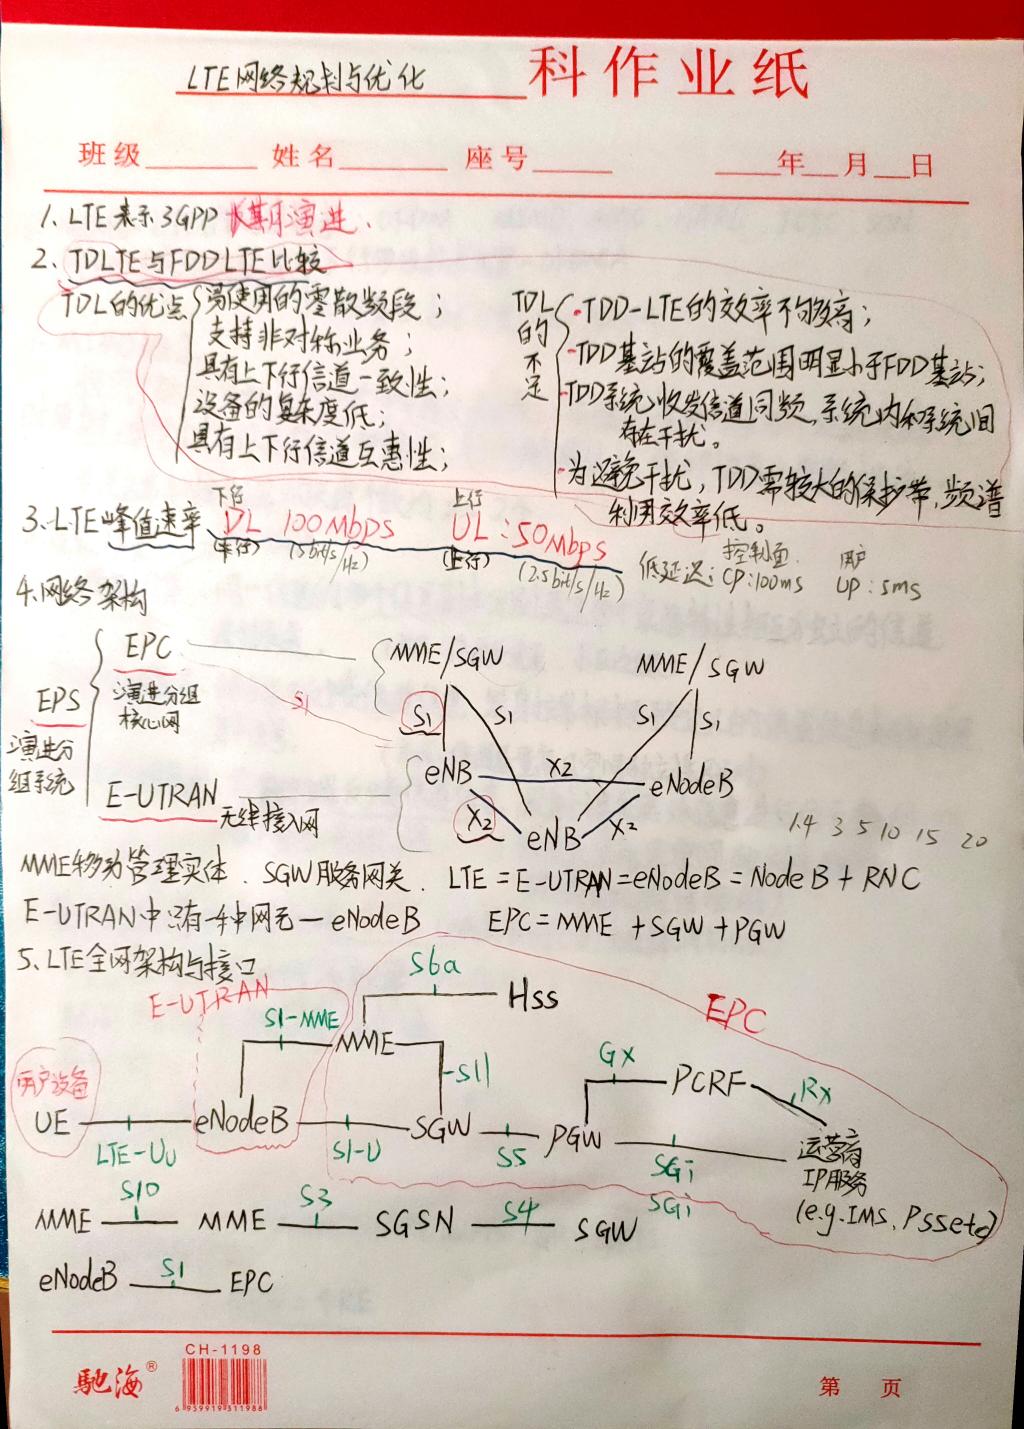 LTE网络规划与优化 科作业纸
班级 姓名 座号 年 月 日
1. LTE表示3GPP 长期演进.
2、TDLTE与FDDLTE比较
TDL的优点
易使用的零散频段；
支持非对称业务；
具有上下行信道一致性；
设备的复杂度低；
具有上下行信道互惠性；
TDL的不足
·TDD-LTE的效率不够高；
·TDD基站的覆盖范围明显小于FDD基站；
·TDD系统收发信道同频,系统内和系统间
存在干扰。
·为避免干扰，TDD需较大的保护带,频谱
利用效率低。
下行 上行
3、LTE峰值速率 DL 100Mbps UL：50Mbps
(下行) (5bit/s/Hz) (上行) (2.5bit/s/Hz)
低延迟：控制面 CP：100ms 用户 UP：5ms
4、网络架构
EPS 演进分组系统
EPC
演进分组
核心网
E-UTRAN 无线接入网
S1
MME/SGW MME/SGW
S1 S1 S1 S1
eNB X2 eNodeB
X2 eNB X2
1.4 3 5 10 15 20
MME移动管理实体、SGW服务网关、LTE=E-UTRAN=eNodeB=NodeB+RNC
E-UTRAN中只有一种网元—eNodeB EPC=MME+SGW+PGW
5、LTE全网架构与接口
E-UTRAN
S6a
HSS
EPC
S1-MME MME
S11
Gx PCRF Rx
用户设备
UE eNodeB SGW PGW 运营商
LTE-Uu S1-U S5 SGi IP服务
SGi (e.g.IMS、PSSetc)
S10 S3 S4
MME MME SGSN SGW
S1
eNodeB EPC
CH-1198
馳海®
6 959919 311988
第 页